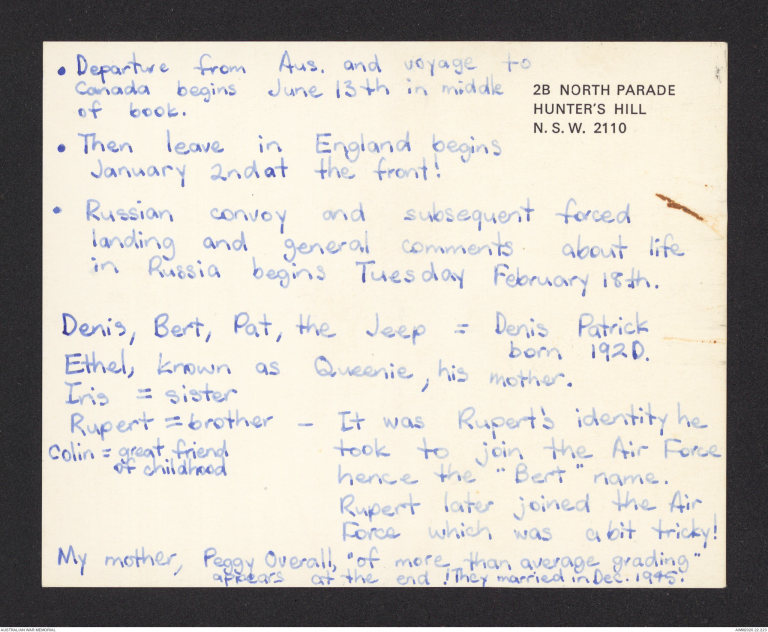 • Departure from Aus. and voyage to
Canada begins June 13th in middle
of book.
2B NORTH PARADE
HUNTER'S HILL
N.S.W. 2110
• Then leave in England begins
January 2nd at the front!
• Russian convoy and subsequent forced
landing and general comments about life
in Russia begins Tuesday February 18th.
Denis, Bert, Pat, the Jeep = Denis Patrick
born 1920.
Ethel, known as Queenie, his mother.
Iris = sister
Rupert = brother – It was Rupert's identity he
took to join the Air Force
hence the "Bert" name.
Colin = great friend
of childhood
Rupert later joined the Air
Force which was a bit tricky!
My mother, Peggy Overall, "of more than average grading"
appears at the end! They married in Dec. 1945.
AUSTRALIAN WAR MEMORIAL